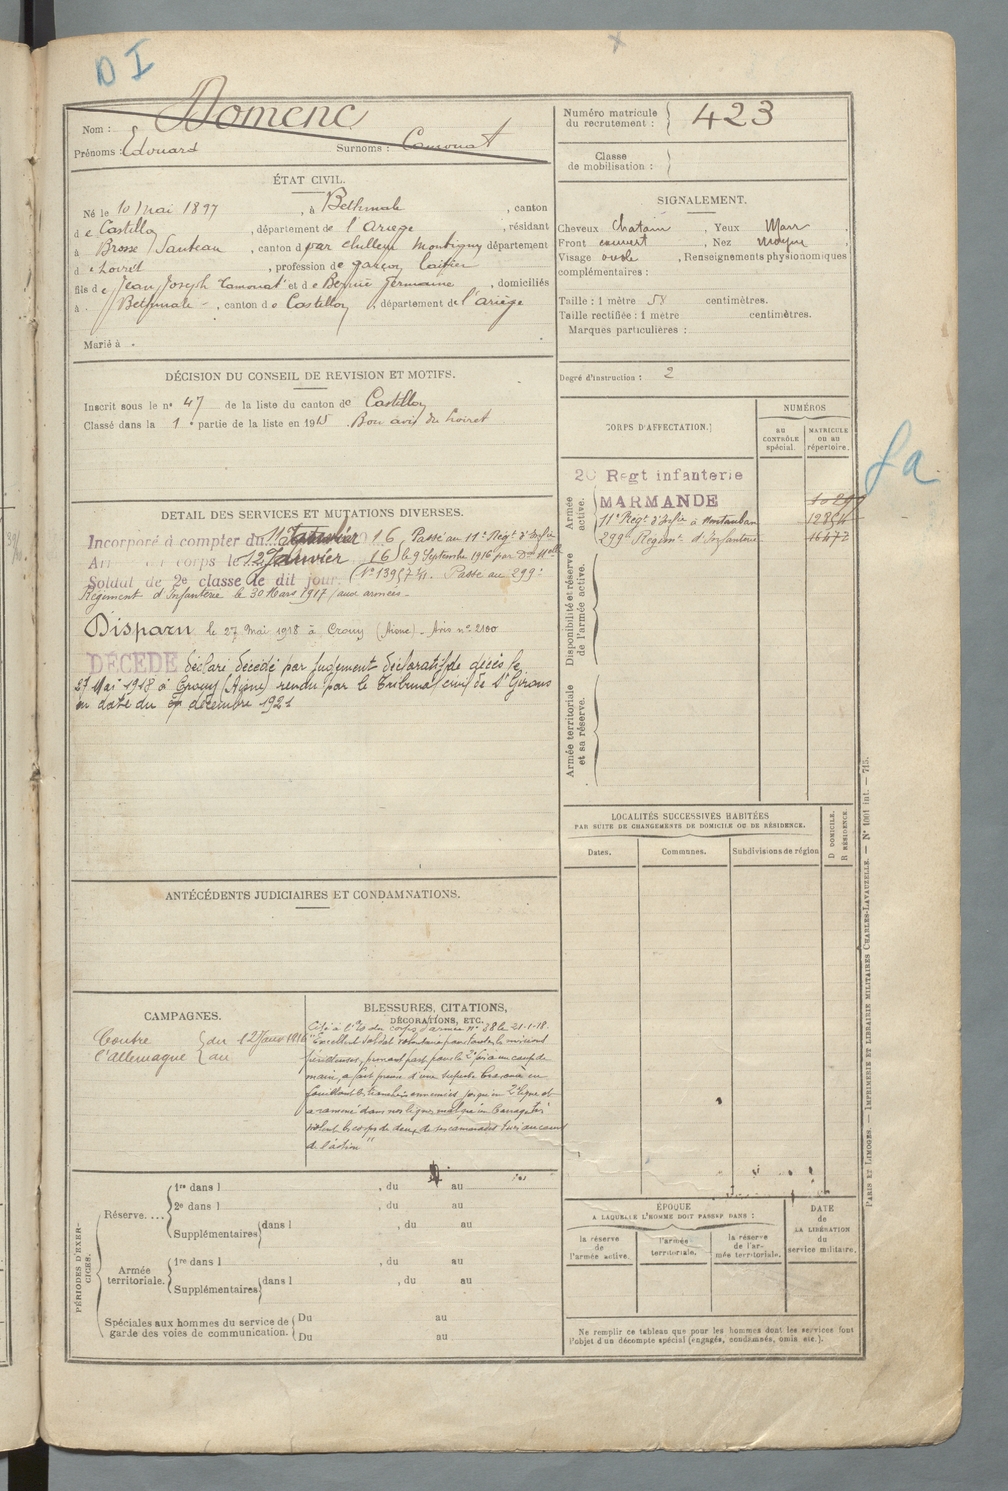 D I
Nom : Domenc
Prénoms : Edouard Surnoms : Camouat
Numéro matricule du recrutement : 423
Classe de mobilisation :
ÉTAT CIVIL.
Né le 10 Mai 1897, à Bethmale, canton
de Castillon, département de l'Ariège, résidant
à Brosse Santeau, canton d par Outarville Montigny département
d Loiret, profession de garçon laitier
fils de Jean Joseph Camouat et de Germaine, domiciliés
à Bethmale, canton de Castillon, département de l'Ariège
Marié à
SIGNALEMENT.
Cheveux chatain, Yeux Marr
Front couvert, Nez moyen
Visage ovale, Renseignements physionomiques
complémentaires :
Taille : 1 mètre 58 centimètres.
Taille rectifiée : 1 mètre centimètres.
Marques particulières :
Degré d'instruction : 2
DÉCISION DU CONSEIL DE REVISION ET MOTIFS.
Inscrit sous le n° 47 de la liste du canton de Castillon
Classé dans la 1 partie de la liste en 1915. Bon avis du Loiret
CORPS D'AFFECTATION.
NUMÉROS
au CONTRÔLE spécial.
MATRICULE ou au répertoire.
Armée active.
20 Regt infanterie
MARMANDE
11e Régt d'Infie à Montauban
299e Régimt d'Infanterie 16677
Disponibilité et réserve de l'armée active.
Armée territoriale et sa réserve.
fa
DETAIL DES SERVICES ET MUTATIONS DIVERSES.
Incorporé à compter du 11 Janvier 1916, Passé au 11e Régt d'Infie
Arrivé au corps le 12 Janvier 1916 le 9 Septembre 1916 par Don Mlle
Soldat de 2e classe le dit jour. (No 13957 Passé au 299e
Régiment d'Infanterie le 30 Mars 1917 (aux armées.
Disparu le 27 mai 1918 à Crouy (Aisne). Avis n° 2100
DÉCÉDÉ déclaré décédé par Jugement déclaratif de décès le
27 Mai 1918 à Crouy (Aisne) rendu par le Tribunal civil de St Girons
en date du décembre 1921
LOCALITÉS SUCCESSIVES HABITÉES
PAR SUITE DE CHANGEMENTS DE DOMICILE OU DE RÉSIDENCE.
Dates. Communes. Subdivisions de région
D DOMICILE.
R RÉSIDENCE.
ANTÉCÉDENTS JUDICIAIRES ET CONDAMNATIONS.
CAMPAGNES.
Contre l'Allemagne du 12 Janv 1916
au
BLESSURES, CITATIONS,
DÉCORATIONS, ETC.
Cité à l'O du corps d'armée n° 38 le 21-1-18.
"Excellent soldat volontaire pour toutes les missions
périlleuses, prenant part pour la 2e fois à un coup de
main, a fait preuve d'une superbe bravoure en
fouillant les tranchées ennemies jusqu'en 2e ligne et
a ramené dans nos lignes malgré un barrage très
violent le corps de deux de ses camarades tués au cours
de l'action"
PÉRIODES D'EXERCICES.
Réserve....
1re dans l , du au
2e dans l , du au
Supplémentaires dans l , du au
Armée territoriale.
1re dans l , du au
Supplémentaires dans l , du au
Spéciales aux hommes du service de garde des voies de communication.
Du au
Du au
ÉPOQUE
A LAQUELLE L'HOMME DOIT PASSER DANS :
la réserve de l'armée active.
l'armée territoriale.
la réserve de l'armée territoriale.
DATE de LA LIBÉRATION du service militaire.
Ne remplir ce tableau que pour les hommes dont les services font
l'objet d'un décompte spécial (engagés, condamnés, omis etc.).
PARIS ET LIMOGES. — IMPRIMERIE ET LIBRAIRIE MILITAIRES CHARLES-LAVAUZELLE. — N° 1001 int. — 715.